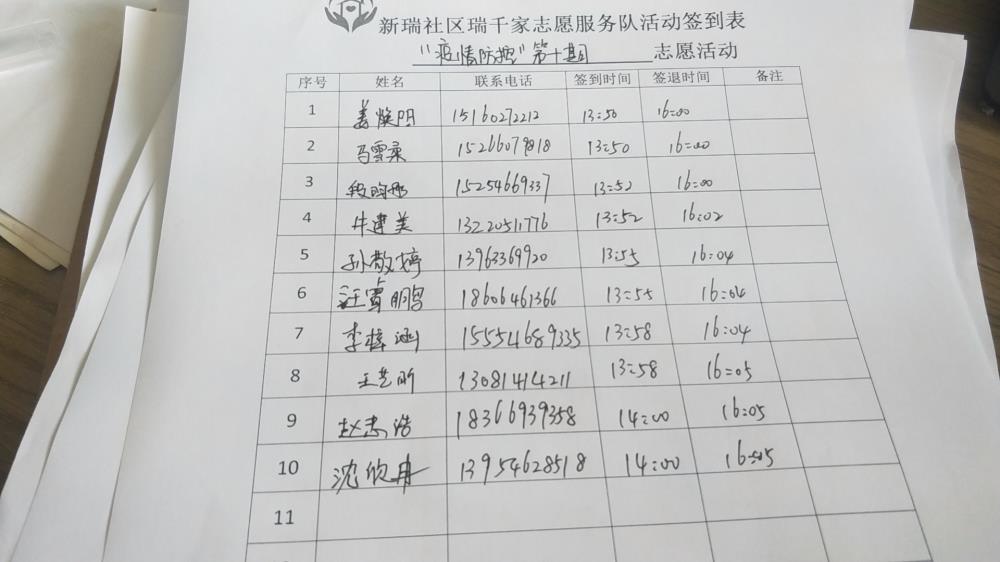 新瑞社区瑞千家志愿服务队活动签到表
“疫情防控”第十期 志愿活动
序号 姓名 联系电话 签到时间 签退时间 备注
1 姜焕明 15160272212 13:50 16:00
2 马雪柔 15266079818 13:50 16:00
3 段昀彤 15254669337 13:52 16:00
4 牛建美 13220511776 13:52 16:02
5 孙敬婷 13963369920 13:55 16:04
6 汪 鹏 18606461366 13:55 16:04
7 李梓涵 15554689335 13:58 16:04
8 王艺昕 13081414211 13:58 16:05
9 赵志浩 18366939358 14:00 16:05
10 沈欣冉 13954628518 14:00 16:05
11